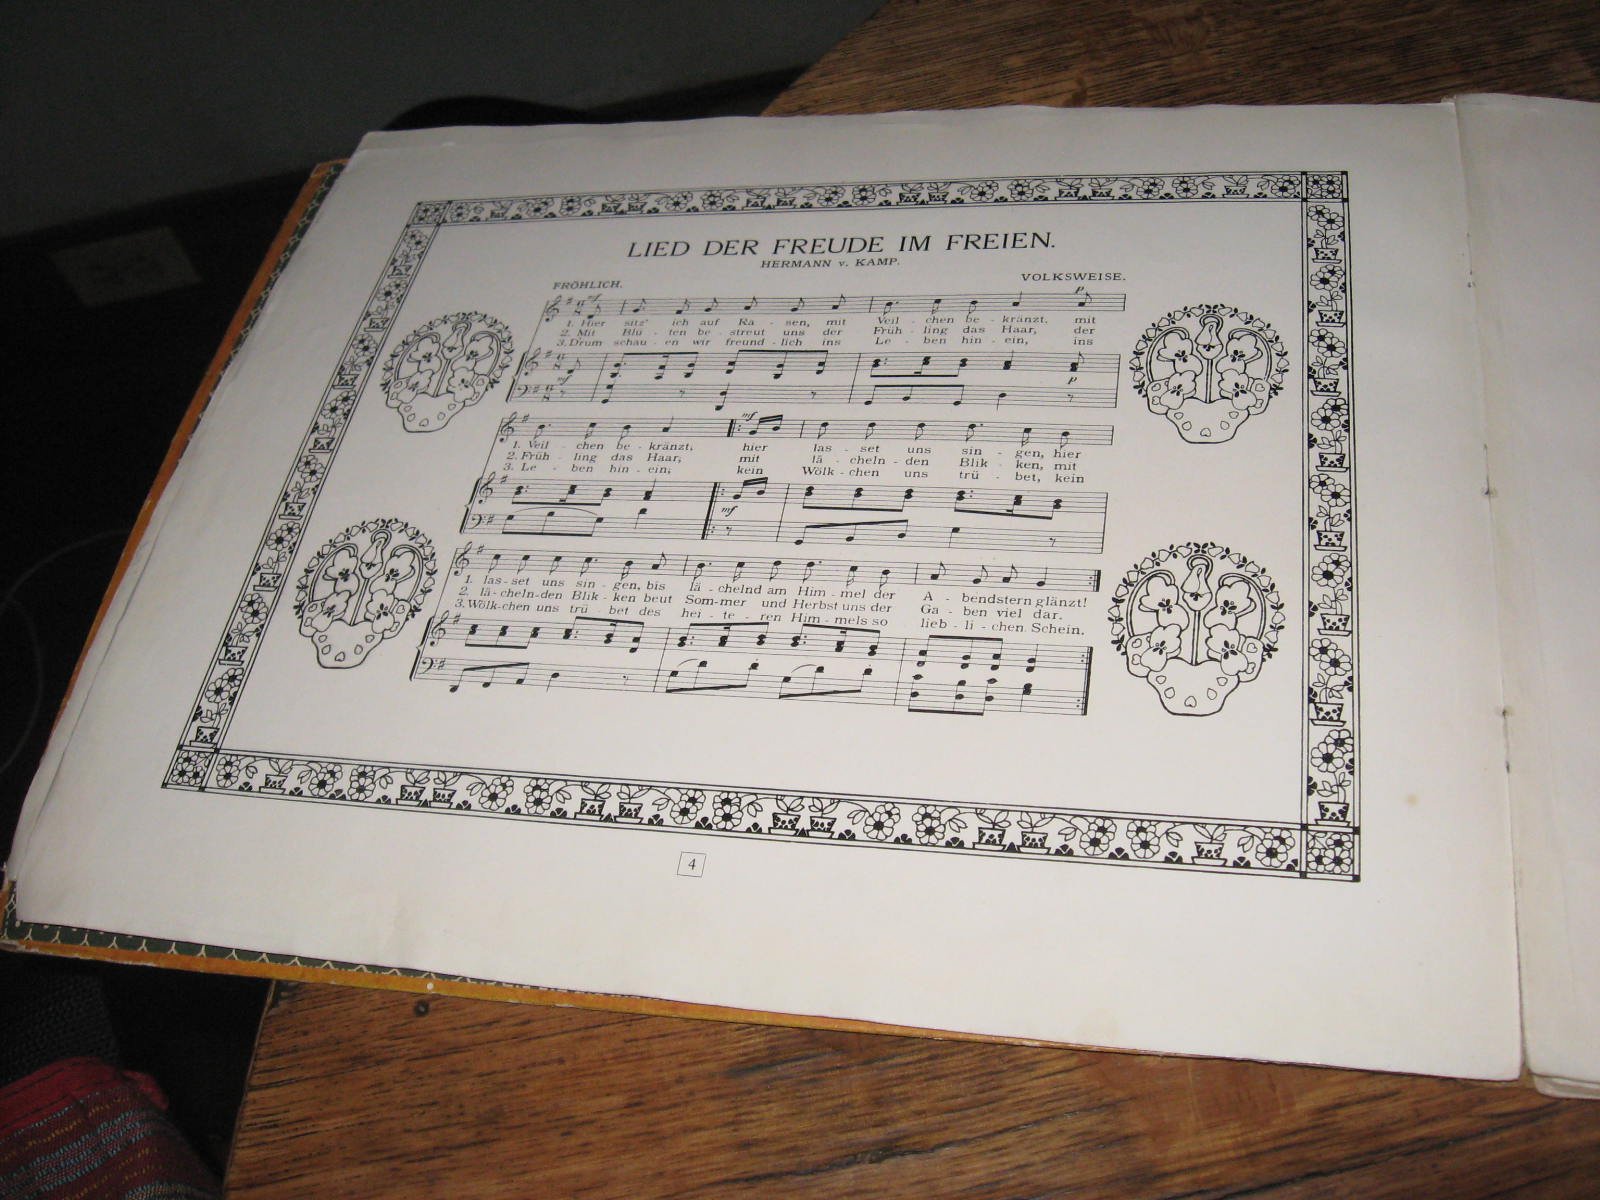 LIED DER FREUDE IM FREIEN.
HERMANN v. KAMP.
FRÖHLICH.
VOLKSWEISE.
mf
p
1. Hier sitz' ich auf Ra - sen, mit Veil - chen be - kränzt, mit
2. Mit Blü - ten be - streut uns der Früh - ling das Haar, der
3. Drum schau - en wir freund - lich ins Le - ben hin - ein, ins
mf
p
mf
1. Veil - chen be - kränzt; hier las - set uns sin - gen, hier
2. Früh - ling das Haar, mit lä - cheln - den Blik - ken, mit
3. Le - ben hin - ein; kein Wölk - chen uns trü - bet, kein
mf
1. las - set uns sin - gen, bis lä - chelnd am Him - mel der A - bendstern glänzt!
2. lä - cheln - den Blik - ken beut Som - mer und Herbst uns der Ga - ben viel dar.
3. Wölk - chen uns trü - bet des hei - te - ren Him - mels so lieb - li - chen Schein.
4